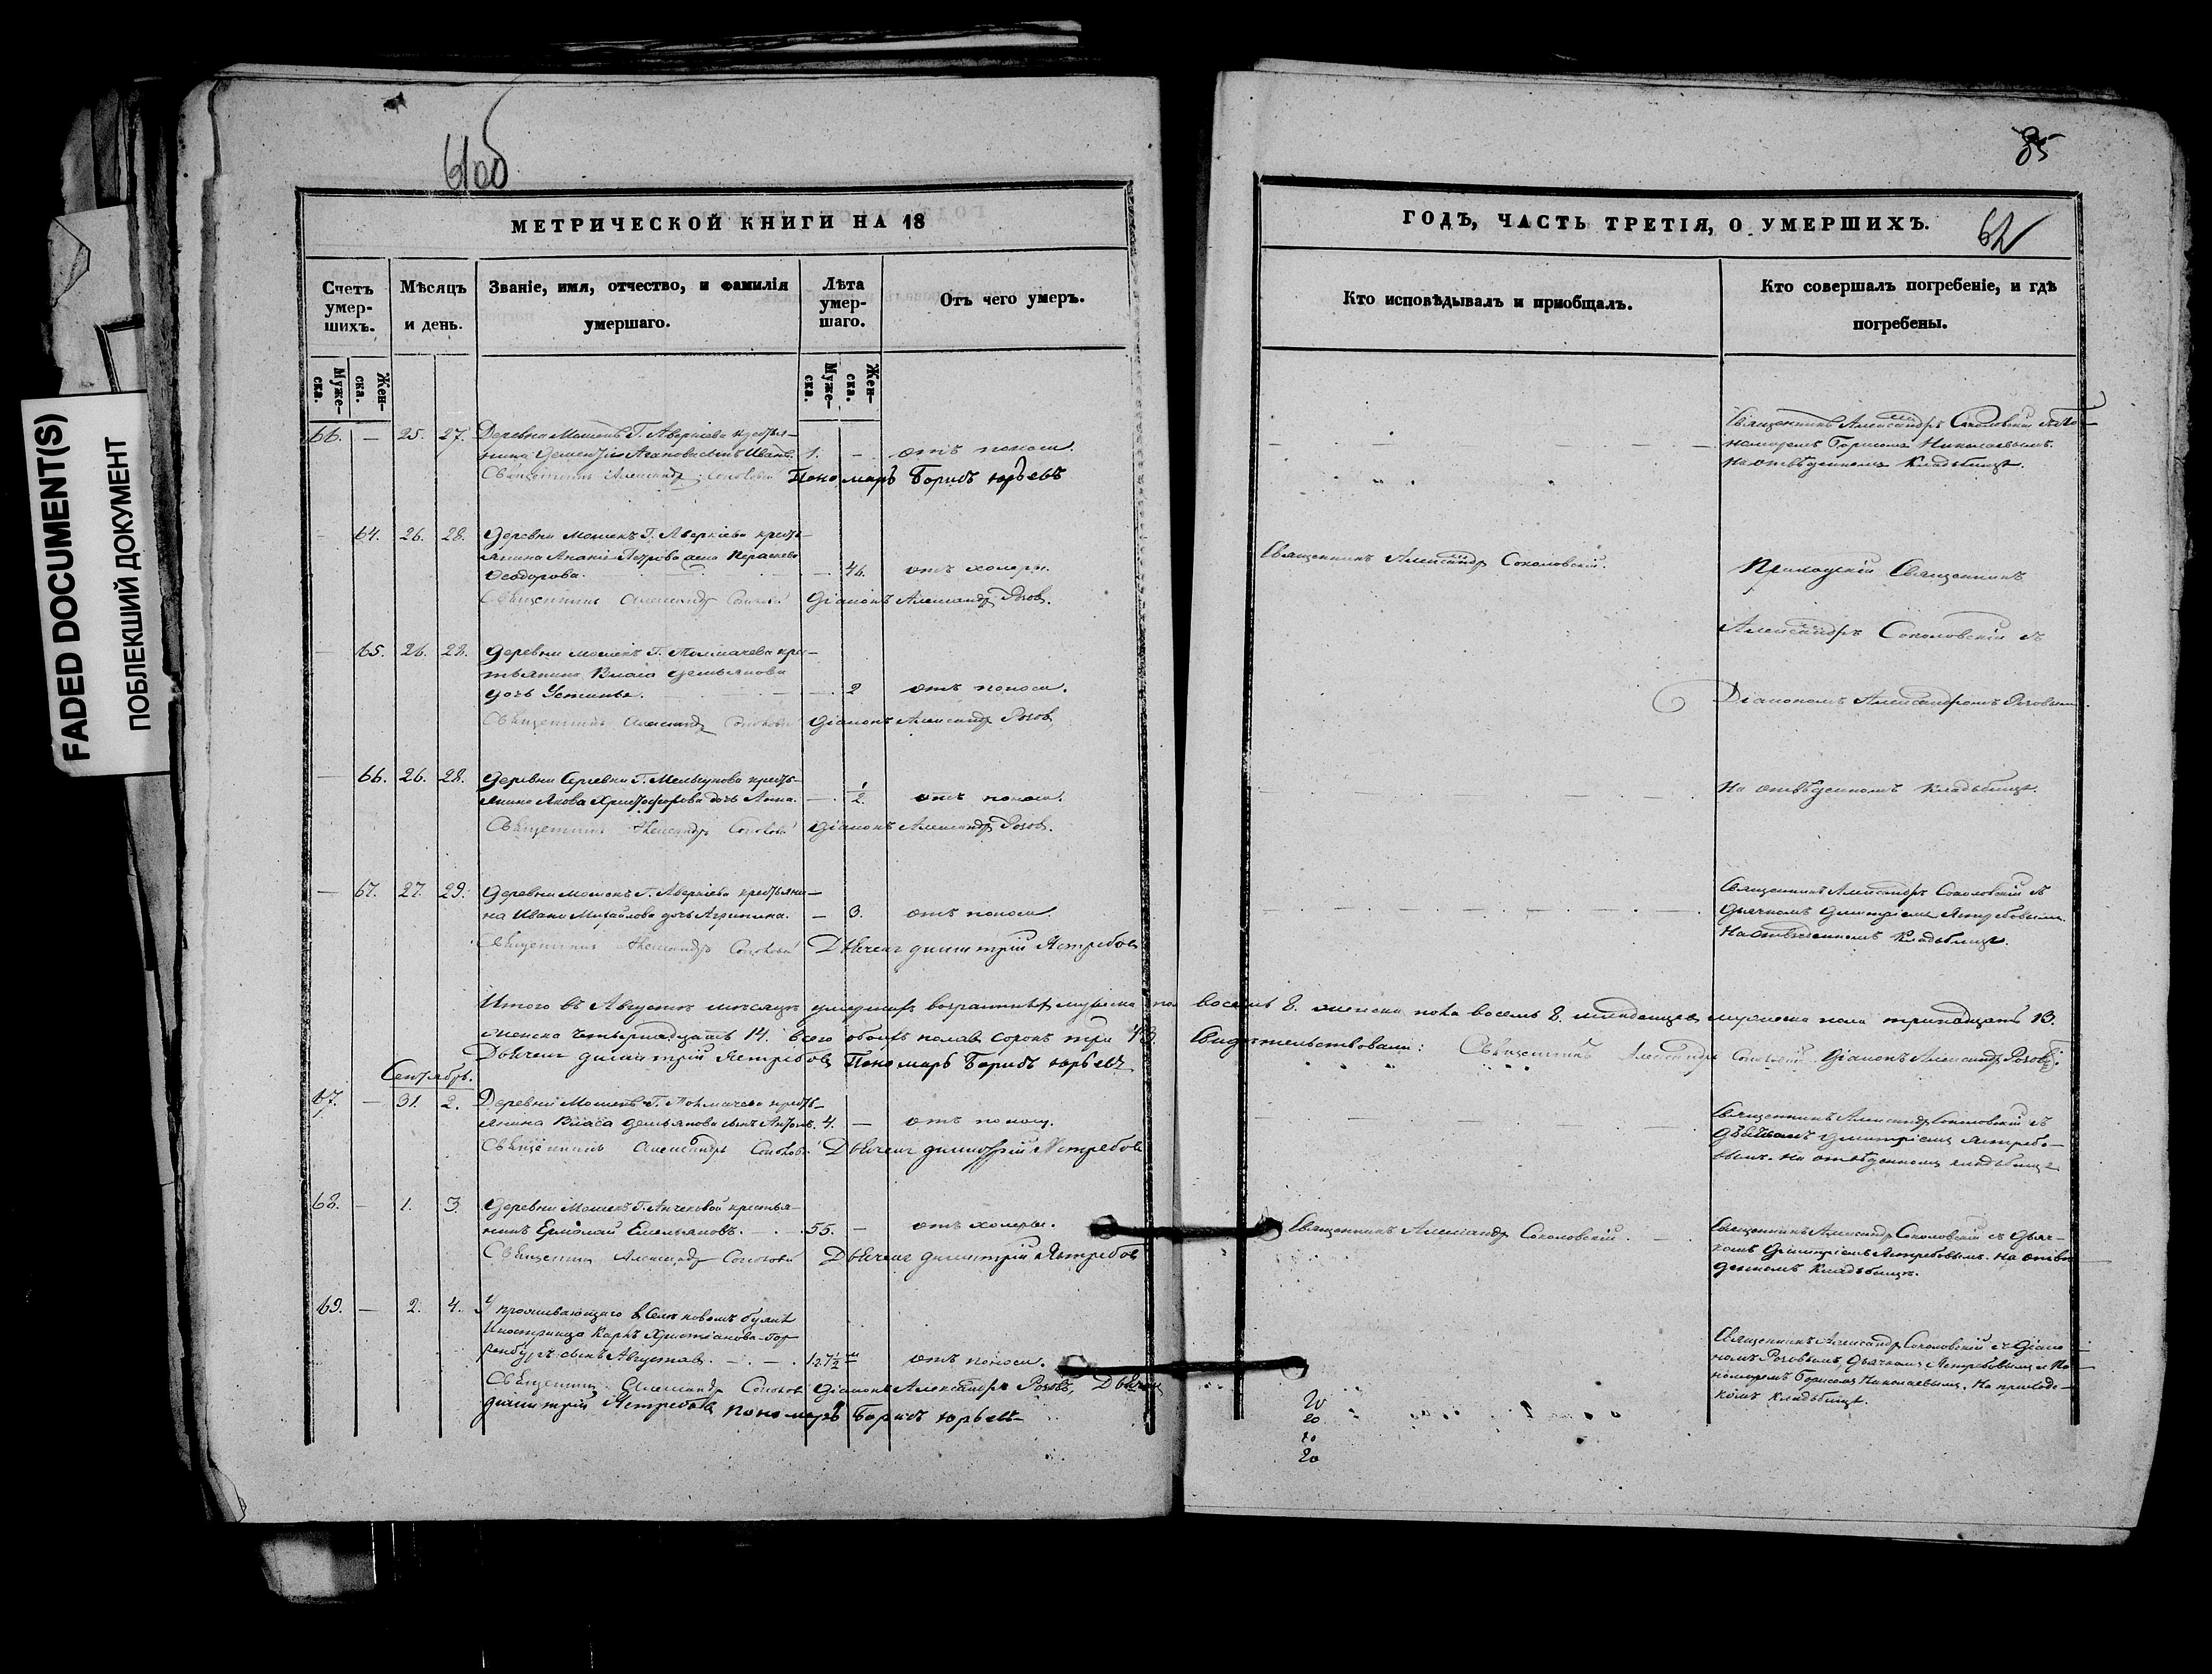 61об
85
62
FADED DOCUMENT(S)
ПОБЛЕКШИЙ ДОКУМЕНТ
МЕТРИЧЕСКОЙ КНИГИ НА 18
Счетъ умер-шихъ.
Мѣсяцъ и день.
Званіе, имя, отчество, и фамилія умершаго.
Лѣта умер-шаго.
Отъ чего умеръ.
Муже-ска.
Жен-ска.
Муже-ска.
Жен-ска.
66. — 25. 27. Деревни Мошекъ Г. Аверкіева кресть-
янина сынъ Иванъ. 1. — отъ поноса.
Священникъ Александръ Пономарь Борисъ Юрьевъ
— 64. 26. 28. Деревни Мошекъ Г. Аверкіева кресть-
янина Ананіи Петрова жена
Ѳеодорова. — 46. отъ холеры.
Священникъ Александръ Діаконъ Александръ Розовъ.
— 65. 26. 28. Деревни Мошекъ Г. Толмачева кре-
стьянина Власа Демьянова
дочь Устинья. — 2 отъ поноса.
Священникъ Александръ Діаконъ Александръ Розовъ
— 66. 26. 28. Деревни Г. Мельгунова кресть-
янина Якова Христофорова дочь Анна. — 1/2. отъ поноса.
Священникъ Александръ Діаконъ Александръ Розовъ.
— 67. 27. 29. Деревни Мошекъ Г. Аверкіева крестьяни-
на Ивана Михайлова дочь Агрипина. — 3. отъ поноса.
Священникъ Александръ Дьячекъ Димитрій Ястребовъ
Итого въ Августѣ мѣсяцѣ умершихъ возрастныхъ мужска пола восемь 8. женска пола восемь 8. младенцевъ мужеска пола тринадцать 13.
женска четырнадцать 14. всего обоихъ полавъ сорокъ три 43. Свидѣтельствовали: Священникъ Александръ Соколовскій Діаконъ Александръ Розовъ.
Дьячекъ Димитрій Ястребовъ Пономарь Борисъ Юрьевъ
Сентябрь.
67. — 31. 2. Деревни Мошекъ Г. Толмачева кресть-
янина Власа Демьянова сынъ Антонъ. 4. — отъ поноса.
Священникъ Александръ Дьячекъ Димитрій Ястребовъ
68. — 1. 3. Деревни Мошекъ Г. крестья-
нинъ Ермолай Емельяновъ. 55. — отъ холеры.
Священникъ Александръ Дьячекъ Димитрій Ястребовъ
69. — 2. 4. У проживающаго въ Селѣ новомъ
Иностранца Карлъ Христіанова
сынъ Августъ. отъ поноса.
Священникъ Александръ Діаконъ Александръ Розовъ, Дьячекъ
Димитрій Ястребовъ Пономарь Борисъ Юрьевъ
ГОДЪ, ЧАСТЬ ТРЕТІЯ, О УМЕРШИХЪ.
Кто исповѣдывалъ и пріобщалъ.
Кто совершалъ погребеніе, и гдѣ погребены.
Священникъ Александръ Соколовскій съ По-
номаремъ Борисомъ Николаевымъ.
На отведенномъ Кладбищѣ.
Священникъ Александръ Соколовскій.
Приходскій Священникъ
Александръ Соколовскій съ
Діакономъ Александромъ Розовымъ.
На отведенномъ Кладбищѣ.
Священникъ Александръ Соколовскій съ
Дьячкомъ Димитріемъ Ястребовымъ.
На отведенномъ Кладбищѣ.
Священникъ Александръ Соколовскій съ
Дьячкомъ Димитріемъ Ястребо-
вымъ. На отведенномъ кладбищѣ
Священникъ Александръ Соколовскій.
Священникъ Александръ Соколовскій съ Дьяч-
комъ Димитріемъ Ястребовымъ. На отве-
денномъ Кладбищѣ.
Священникъ Александръ Соколовскій съ Діако-
номъ Розовымъ, Дьячкомъ Ястребовымъ и По-
номаремъ Борисомъ Николаевымъ. На приходс-
комъ Кладбищѣ.
20
20
20
20